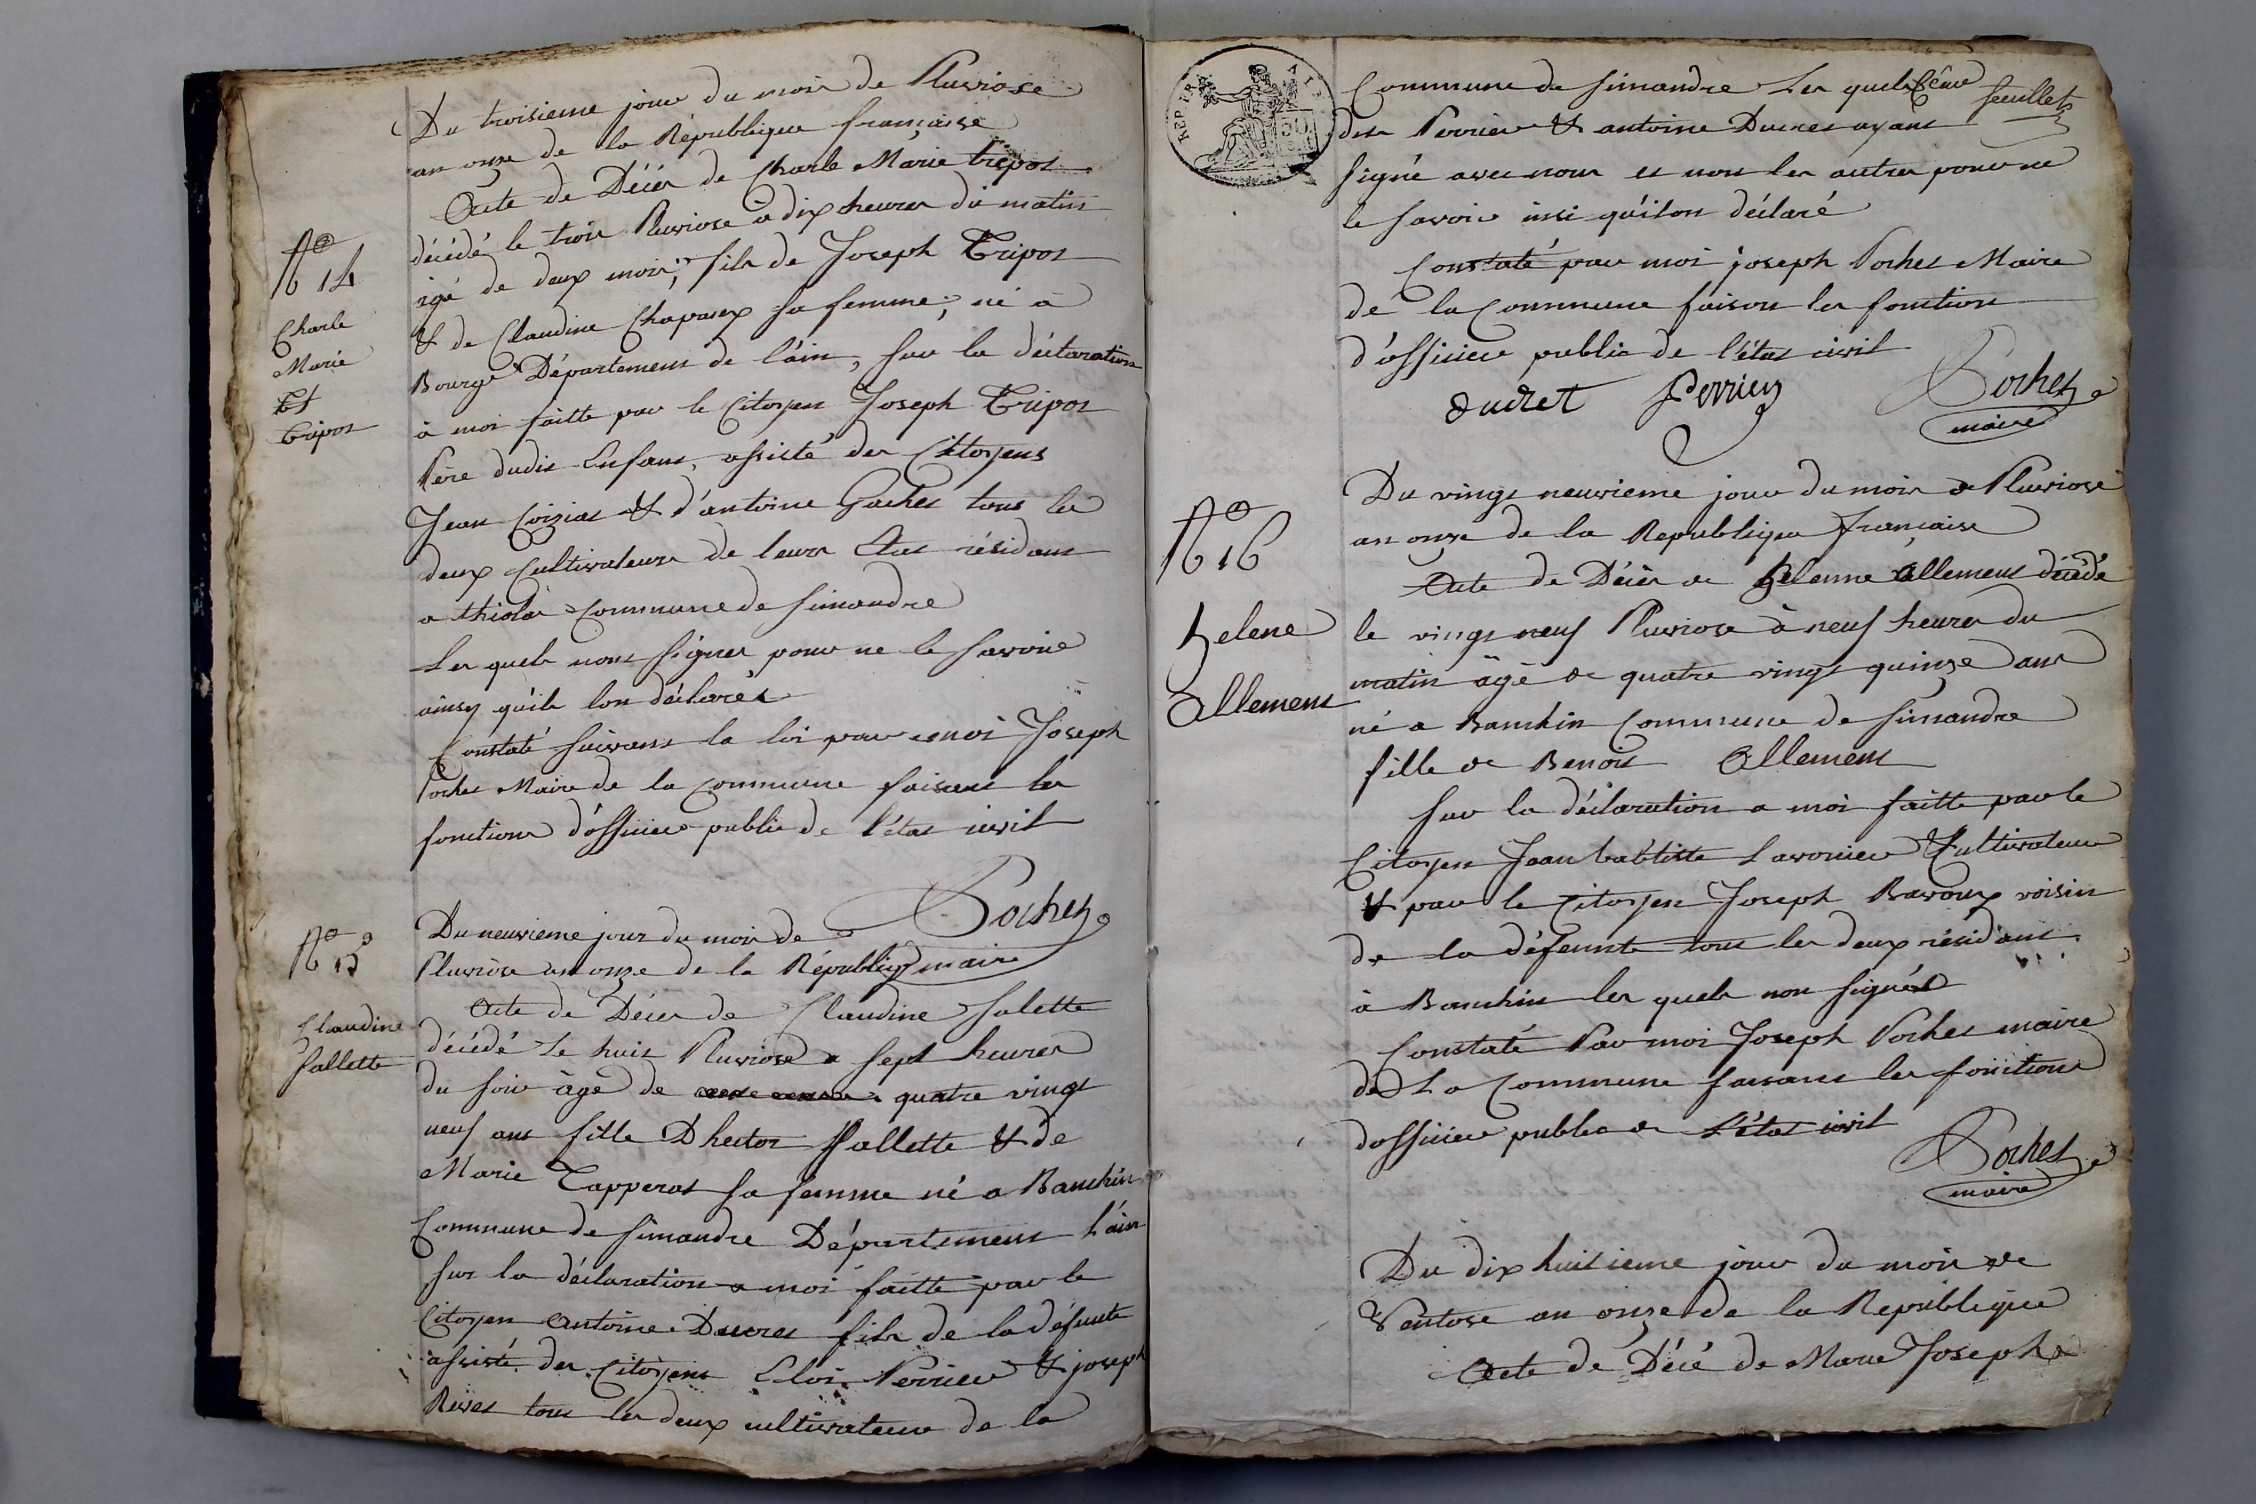 Du troisieme jour du mois de Pluviose
an onze de la République française
Acte de Décés de Charle Marie tripot
décédé le trois Pluviose à dix heures du matin
agé de deux mois, fils de Joseph Tripot
& de Claudine Chapuse sa femme, né à
Bourg Département de l'ain, sur la déclaration
à moi faitte par le Citoyen Joseph Tripot
Père dudit Enfant, assisté des Citoyens
Jean Coiziat & d'antoine Gachet tous les
deux Cultivateurs de leurs Etat résidant
a thiola Commune de simandre
Les quels nont signer pour ne le savoir
ainsy qu'ils lon déclarés
Constaté suivant la loi par moi Joseph
Pochet Maire de la Commune faisant les
fonctions d'officier public de l'état civil
Pochet
maire
N° 14
Charle
Marie
Et
tripot
Du neuvieme jour du mois de
Pluviose an onze de la Républiq
Acte de Décés de Claudine Salette
décédé le huit Pluviose a sept heures
du soir àgé de quatre vingt
neuf ans fille D hector Sallette & de
Marie Tapperat sa femme né a Banchin
Commune de simandre Département L'ain
sur la déclaration a moi faitte par le
Citoyen Antoine Ducret fils de la défunte
assisté des Citoyens Eloi Perrier & joseph
Revet tous les deux cultivateur de la
N° 15
Claudine
Sallette
REP. FRA
Commune de simandre Les quels
feuillet
dits Perrier & antoine Ducret ayant
signé avec nous et non les autres pour ne
le savoir insi qu'ilon déclaré
Constaté par moi joseph Pochet Maire
de la Commune faison les fonction
d'officier public de l'état civil
ducret Perrier Pochet
maire
Du vingt neuvieme jour du mois de Pluviose
an onze de la Republique française
Acte de Décès de helenne Allement décédé
le vingt neuf Pluviose à neuf heures du
matin àgé de quatre vingt quinze ans
né a Banchin Commune de simandre
fille de Benoit Allement
Sur la déclaration a moi faitte par le
Citoyen Jean batiste Lavorier Cultivateur
& par le Citoyen Joseph Bavoux voisin
de la défunte tous les deux résidant
à Banchin les quels non signés
Constaté Par moi Joseph Pochet maire
de La Commune faisant les fonctions
dofficier public de L'état civil
Pochet
maire
N° 16
helene
Allement
Du dix huitieme jour du mois de
Ventose an onze de la Republique
Acte de Décé de Marie Joseph